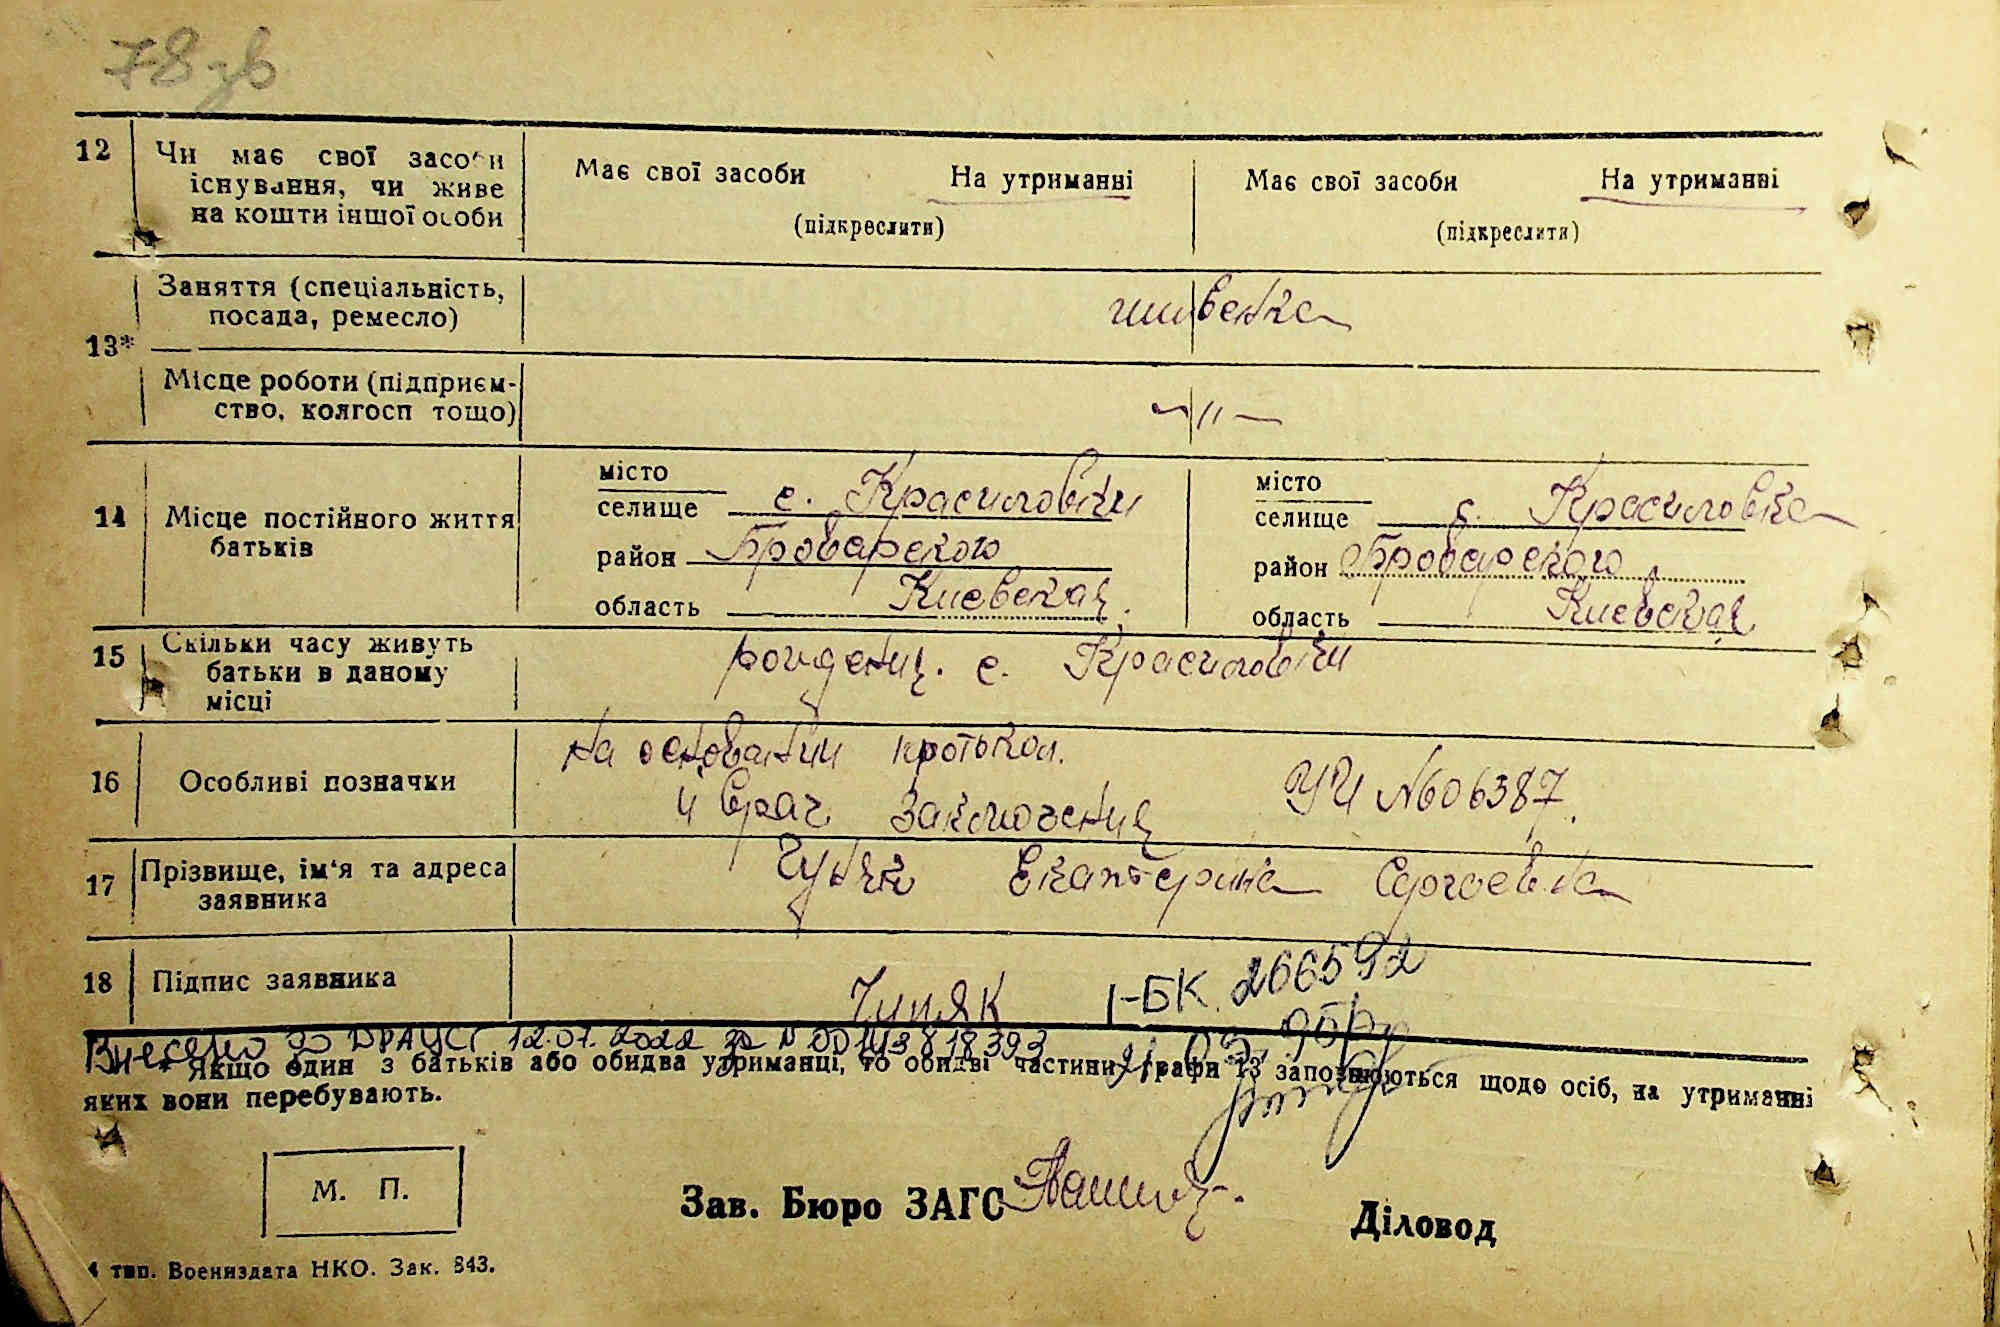 78 зв
12 Чи має свої засоби Має свої засоби На утриманні Має свої засоби На утриманні
існування, чи живе
на кошти іншої особи (підкреслити) (підкреслити)
Заняття (спеціальність, швейка
посада, ремесло)
13*
Місце роботи (підприєм- —〃—
ство, колгосп тощо)
місто місто
14 Місце постійного життя селище с. Красиловки селище с. Красиловка
батьків район Броварского район Броварского
область Киевская. область Киевская
15 Скільки часу живуть рожденця. с. Красиловки
батьки в даному
місці
16 Особливі позначки на основании протокол.
и врач заключения УЧ №606387.
17 Прізвище, ім'я та адреса Екатерина Сергеевна
заявника
18 Підпис заявника Чупяк І-БК 266592
Внесено до ДРАЦСГ 12.07.2022 за N
* Якщо один з батьків або обидва утриманці, то обидві частини графи 13 заповнюються щодо осіб, на утриманні
яких вони перебувають.
М. П.
Зав. Бюро ЗАГС Діловод
4 тип. Воениздата НКО. Зак. 843.